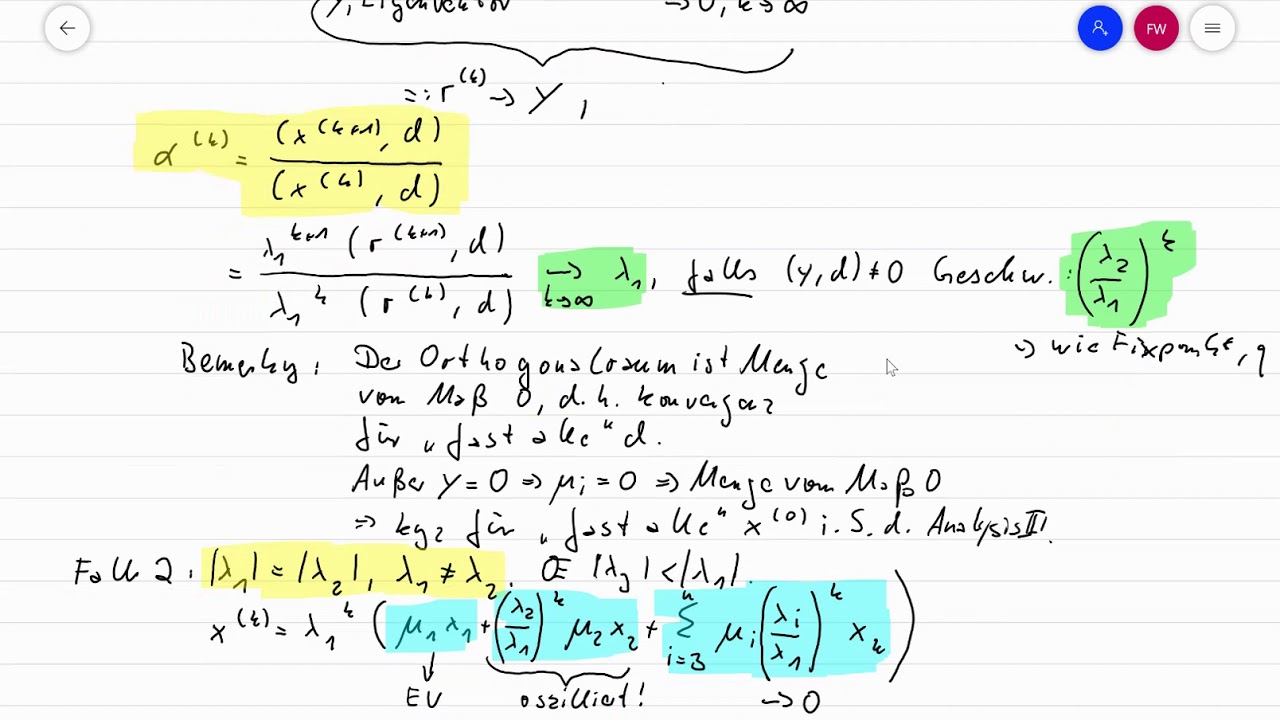 y, Eigenvektor → 0, k → ∞
FW
=: r^(k) → y,
α^(k) = (x^(k+1), d) / (x^(k), d)
= λ₁^(k+1) (r^(k+1), d) / λ₁^k (r^(k), d) → λ₁, falls (y,d) ≠ 0 Geschw.: (λ₂/λ₁)^k
k→∞
→ wie Fixpunkt, q
Bemerkg: Der Orthogonalraum ist Menge
vom Maß 0, d.h. Konvergenz
für „fast alle" d.
Außer y = 0 ⇒ μᵢ = 0 ⇒ Menge vom Maß 0
⇒ kgz für „fast alle" x^(0) i. S. d. Analysis III.
Fall 2: |λ₁| = |λ₂|, λ₁ ≠ λ₂. Œ |λ₃| < |λ₁|.
x^(k) = λ₁^k (μ₁ x₁ + (λ₂/λ₁)^k μ₂ x₂ + Σ_{i=3}^n μᵢ (λᵢ/λ₁)^k x_k)
EV oszilliert! → 0